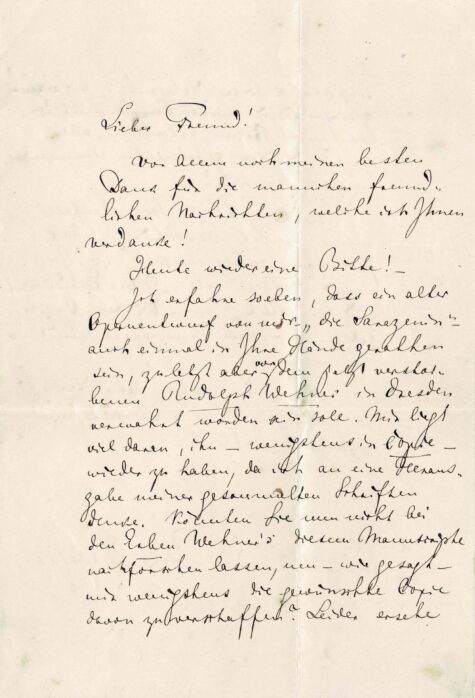 Lieber Freund!
Vor Allem noch meinen besten
Dank für die mannichen freund-
lichen Nachrichten, welche ich Ihnen
verdanke!
Heute wieder eine Bitte! –
Ich erfahre soeben, dass ein alter
Opernentwurf von mir „die Sarazenin"
auch einmal in Ihre Hände gerathen
sein, zuletzt aber von dem jetzt verstor-
benen Rudolph Wehner in Dresden
verwahrt worden sein solle. Mir liegt
viel daran, ihn – wenigstens in Copie –
wieder zu haben, da ich an eine Heraus-
gabe meiner gesammelten Schriften
denke. Könnten Sie nun nicht bei
den Erben Wehner's diesem Manuscripte
nachforschen lassen, um – wie gesagt –
mir wenigstens die gewünschte Copie
davon zu verschaffen? Leider ersehe